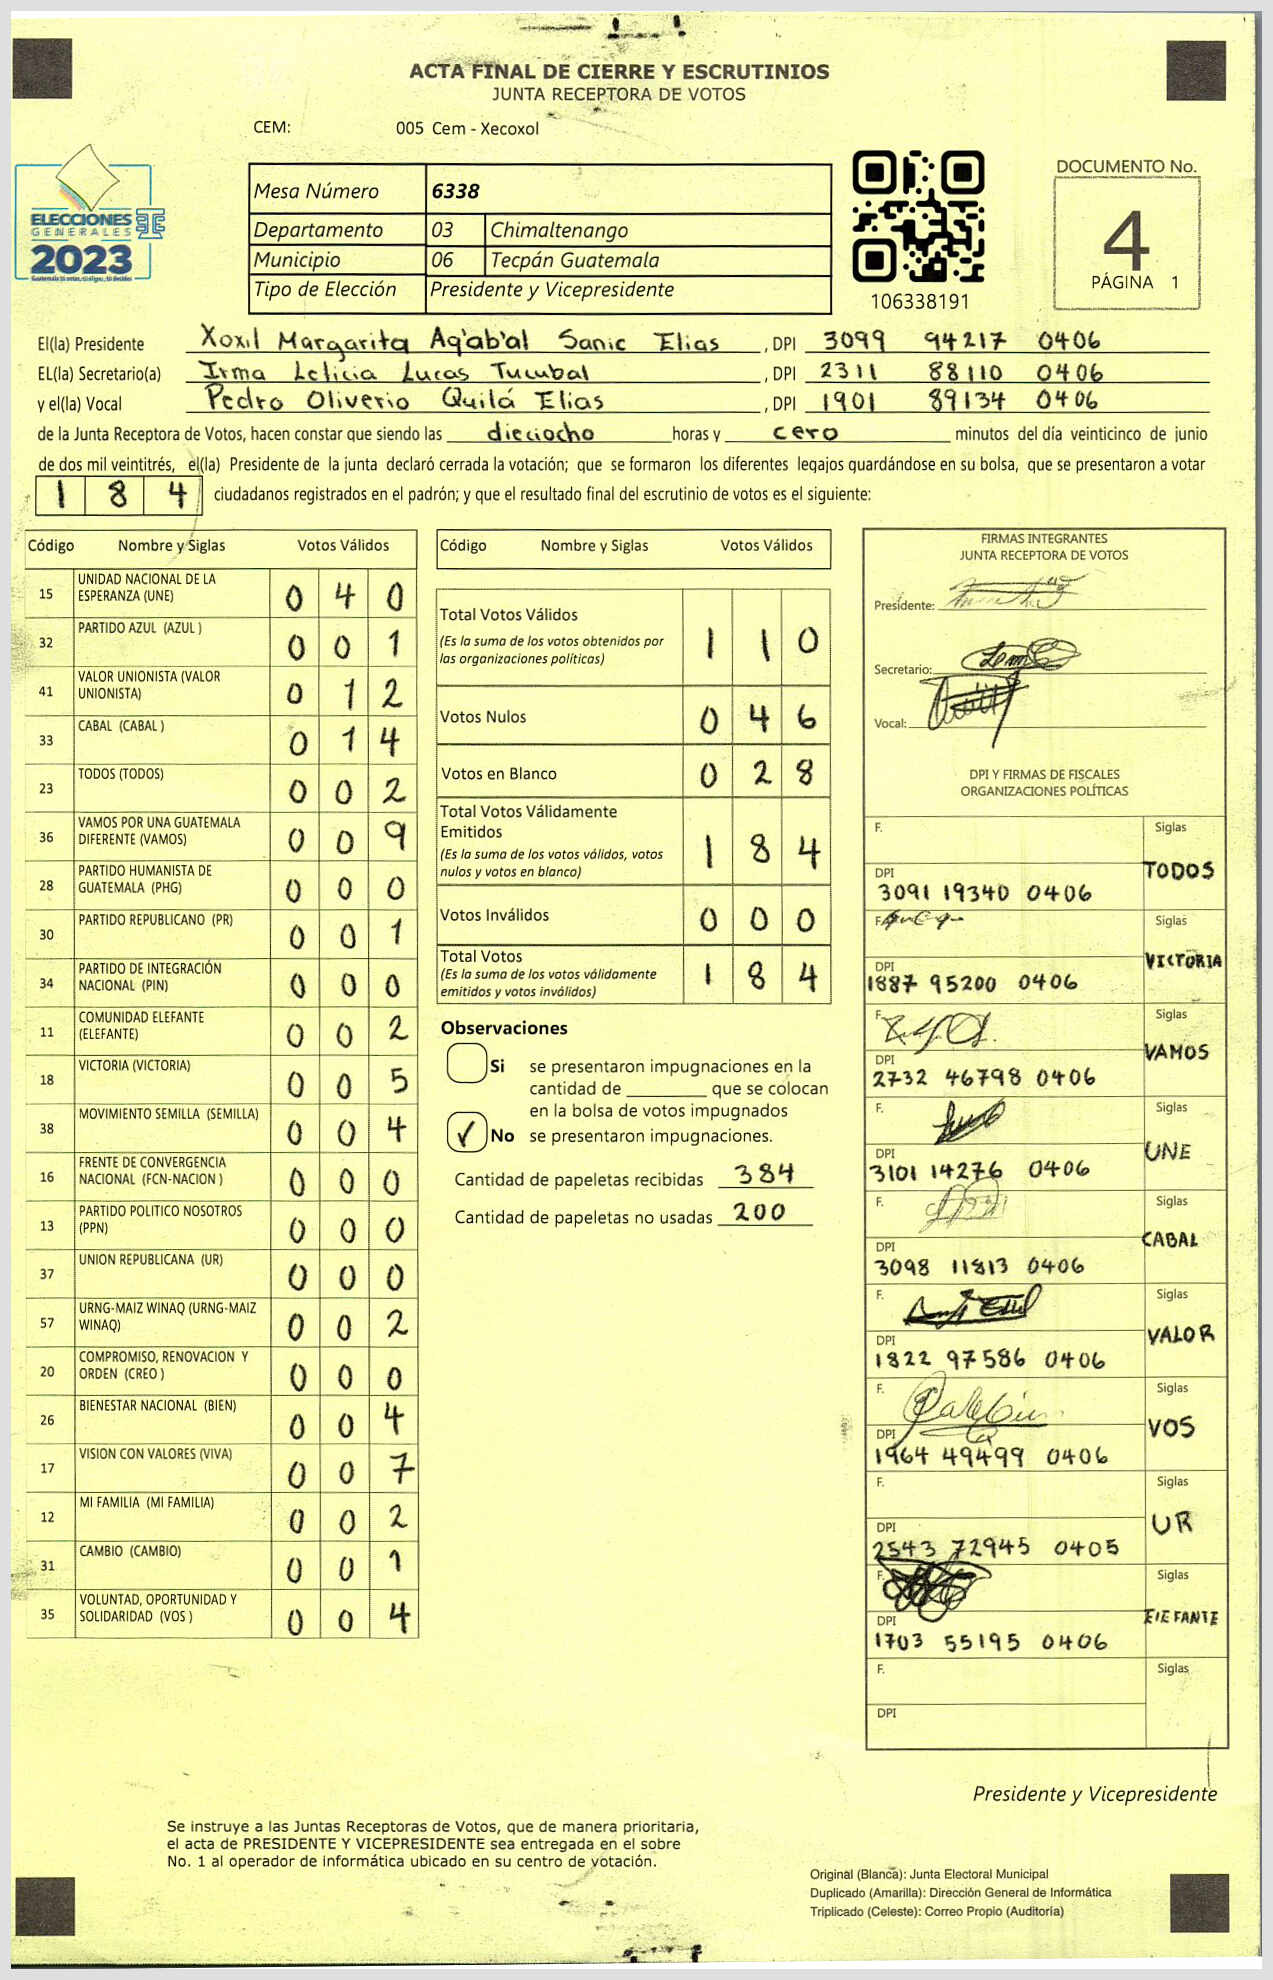 ACTA FINAL DE CIERRE Y ESCRUTINIOS
JUNTA RECEPTORA DE VOTOS
CEM: 005 Cem - Xecoxol
ELECCIONES
GENERALES
2023
Mesa Número 6338
Departamento 03 Chimaltenango
Municipio 06 Tecpán Guatemala
Tipo de Elección Presidente y Vicepresidente
106338191
DOCUMENTO No.
4
PÁGINA 1
El(la) Presidente Xoxil Margarita Aq'ab'al Sanic Elias , DPI 3099 94217 0406
EL(la) Secretario(a) Irma Leticia Lucas Tucubal , DPI 2311 88110 0406
y el(la) Vocal Pedro Oliverio Quilá Elias , DPI 1901 89134 0406
de la Junta Receptora de Votos, hacen constar que siendo las dieciocho horas y cero minutos del día veinticinco de junio
de dos mil veintitrés, el(la) Presidente de la junta declaró cerrada la votación; que se formaron los diferentes legajos guardándose en su bolsa, que se presentaron a votar
184 ciudadanos registrados en el padrón; y que el resultado final del escrutinio de votos es el siguiente:
Código Nombre y Siglas Votos Válidos
15 UNIDAD NACIONAL DE LA ESPERANZA (UNE) 040
32 PARTIDO AZUL (AZUL ) 001
41 VALOR UNIONISTA (VALOR UNIONISTA) 012
33 CABAL (CABAL ) 014
23 TODOS (TODOS) 002
36 VAMOS POR UNA GUATEMALA DIFERENTE (VAMOS) 009
28 PARTIDO HUMANISTA DE GUATEMALA (PHG) 000
30 PARTIDO REPUBLICANO (PR) 001
34 PARTIDO DE INTEGRACIÓN NACIONAL (PIN) 000
11 COMUNIDAD ELEFANTE (ELEFANTE) 002
18 VICTORIA (VICTORIA) 005
38 MOVIMIENTO SEMILLA (SEMILLA) 004
16 FRENTE DE CONVERGENCIA NACIONAL (FCN-NACION ) 000
13 PARTIDO POLITICO NOSOTROS (PPN) 000
37 UNION REPUBLICANA (UR) 000
57 URNG-MAIZ WINAQ (URNG-MAIZ WINAQ) 002
20 COMPROMISO, RENOVACION Y ORDEN (CREO ) 000
26 BIENESTAR NACIONAL (BIEN) 004
17 VISION CON VALORES (VIVA) 007
12 MI FAMILIA (MI FAMILIA) 002
31 CAMBIO (CAMBIO) 001
35 VOLUNTAD, OPORTUNIDAD Y SOLIDARIDAD (VOS ) 004
Código Nombre y Siglas Votos Válidos
Total Votos Válidos 110
(Es la suma de los votos obtenidos por
las organizaciones políticas)
Votos Nulos 046
Votos en Blanco 028
Total Votos Válidamente
Emitidos 184
(Es la suma de los votos válidos, votos
nulos y votos en blanco)
Votos Inválidos 000
Total Votos 184
(Es la suma de los votos válidamente
emitidos y votos inválidos)
Observaciones
Si se presentaron impugnaciones en la
cantidad de ________ que se colocan
en la bolsa de votos impugnados
✓ No se presentaron impugnaciones.
Cantidad de papeletas recibidas 384
Cantidad de papeletas no usadas 200
FIRMAS INTEGRANTES
JUNTA RECEPTORA DE VOTOS
Presidente:
Secretario:
Vocal:
DPI Y FIRMAS DE FISCALES
ORGANIZACIONES POLÍTICAS
F. Siglas
TODOS
DPI
3091 19340 0406
F. Siglas
VICTORIA
DPI
1887 95200 0406
F. Siglas
VAMOS
DPI
2732 46798 0406
F. Siglas
UNE
DPI
3101 14276 0406
F. Siglas
CABAL
DPI
3098 11813 0406
F. Siglas
VALOR
DPI
1822 97586 0406
F. Siglas
VOS
DPI
1964 49499 0406
F. Siglas
UR
DPI
2543 72945 0405
F. Siglas
ElEFANTE
DPI
1703 55195 0406
F. Siglas
DPI
Presidente y Vicepresidente
Se instruye a las Juntas Receptoras de Votos, que de manera prioritaria,
el acta de PRESIDENTE Y VICEPRESIDENTE sea entregada en el sobre
No. 1 al operador de informática ubicado en su centro de votación.
Original (Blanca): Junta Electoral Municipal
Duplicado (Amarilla): Dirección General de Informática
Triplicado (Celeste): Correo Propio (Auditoría)